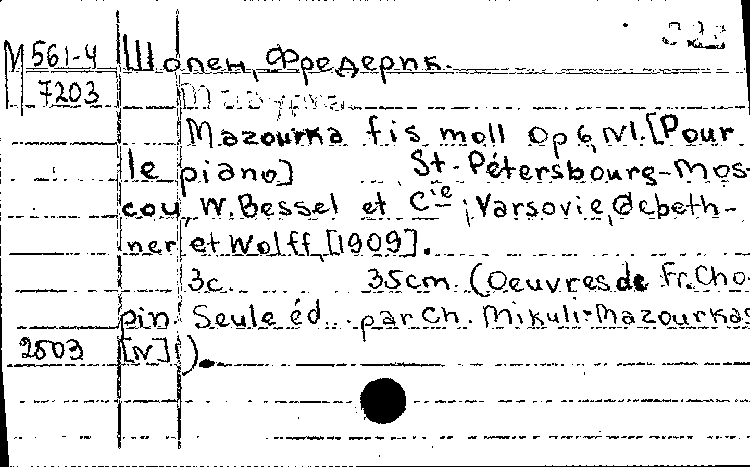 М 561-4 Шопен, Фредерик.
7203 Мазурка
Mazourka fis moll Op 6, N1. [Pour
le piano] St-Pétersbourg-Mos-
cou, W. Bessel et Cie; Varsovie, Gebeth-
ner et Wolff, [1909].
3c. 35cm. (Oeuvres de Fr. Cho-
pin. Seule éd. par Ch. Mikuli: Mazourkas
2503 [N]).